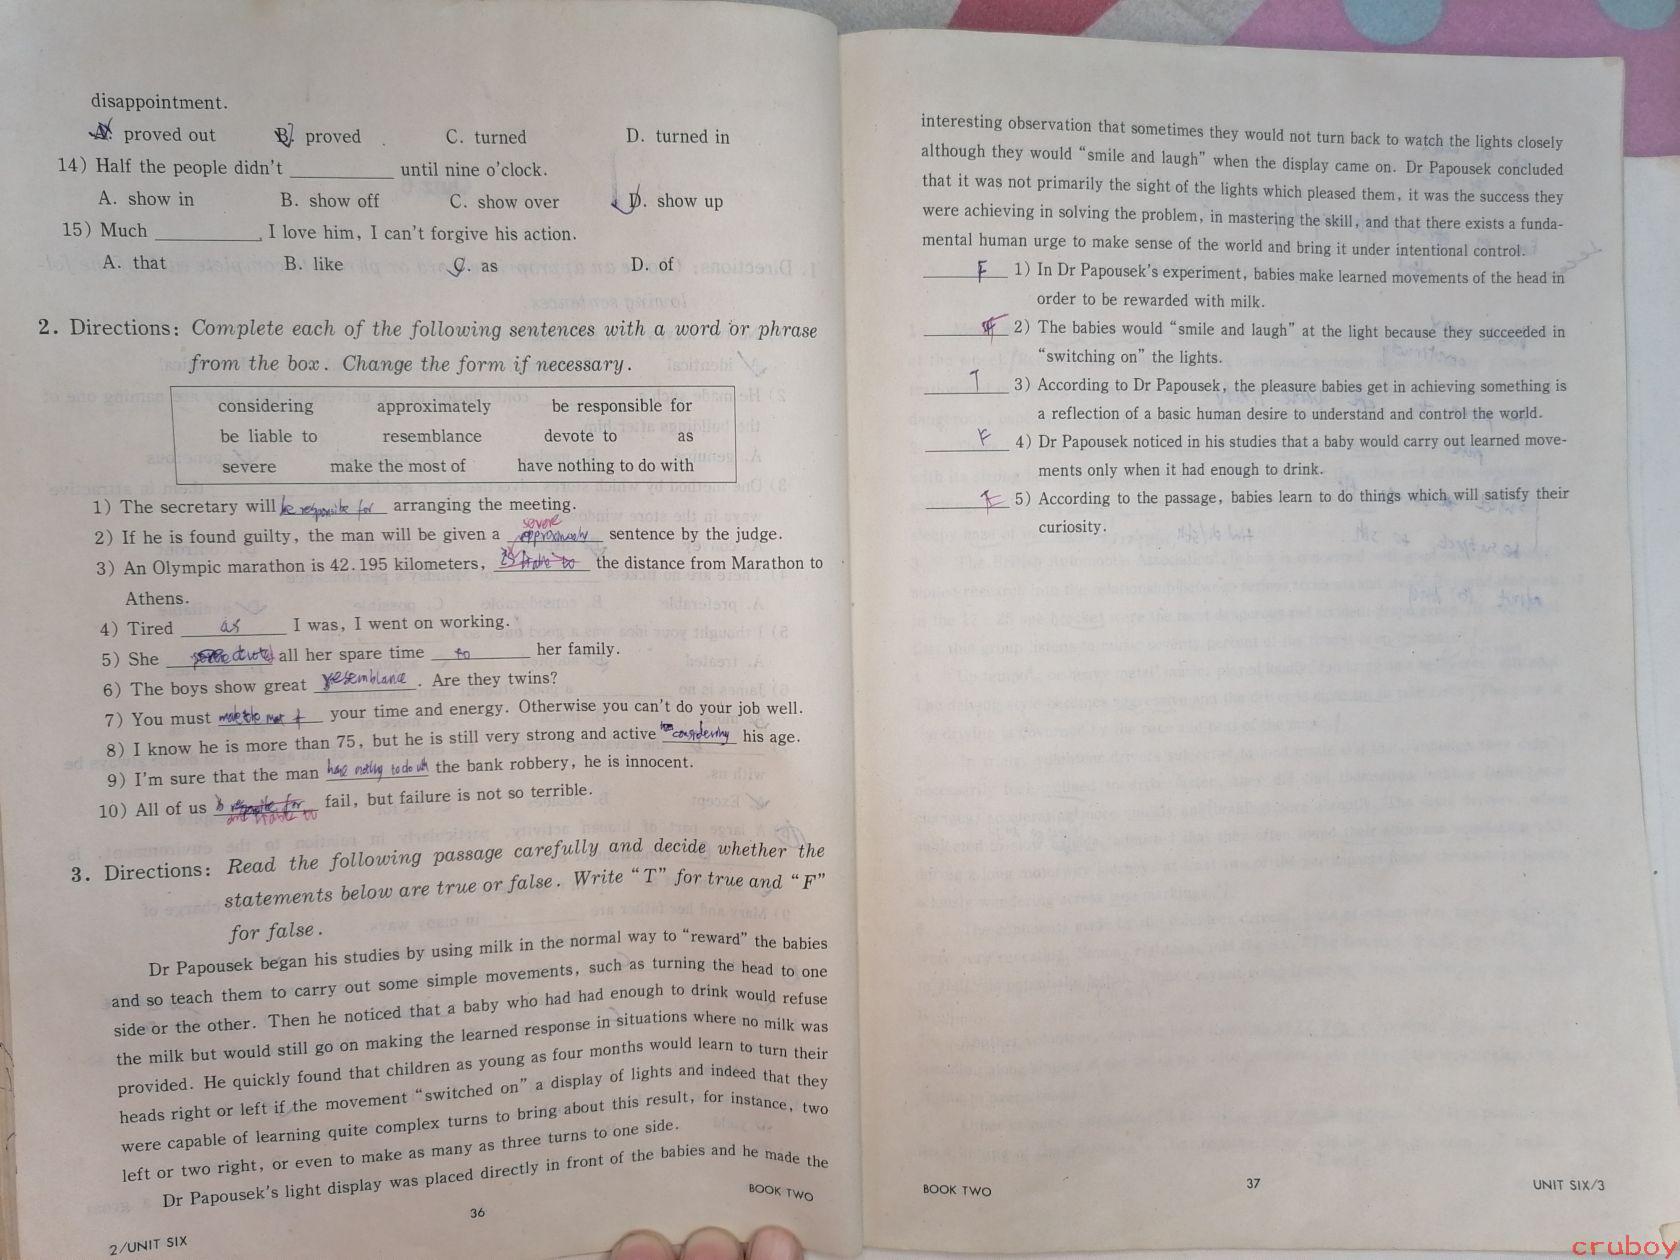 disappointment.
A. proved out B. proved C. turned D. turned in
14) Half the people didn't __________ until nine o'clock.
A. show in B. show off C. show over D. show up
15) Much __________, I love him, I can't forgive his action.
A. that B. like C. as D. of
2. Directions: Complete each of the following sentences with a word or phrase
from the box. Change the form if necessary.
considering approximately be responsible for
be liable to resemblance devote to as
severe make the most of have nothing to do with
1) The secretary will be responsible for arranging the meeting.
severe
2) If he is found guilty, the man will be given a approximately sentence by the judge.
3) An Olympic marathon is 42.195 kilometers, liable to the distance from Marathon to
Athens.
4) Tired as I was, I went on working.
5) She devoted all her spare time to her family.
6) The boys show great resemblance. Are they twins?
7) You must make the most of your time and energy. Otherwise you can't do your job well.
8) I know he is more than 75, but he is still very strong and active considering his age.
9) I'm sure that the man have nothing to do with the bank robbery, he is innocent.
10) All of us be responsible for fail, but failure is not so terrible.
are liable to
3. Directions: Read the following passage carefully and decide whether the
statements below are true or false. Write "T" for true and "F"
for false.
Dr Papousek began his studies by using milk in the normal way to "reward" the babies
and so teach them to carry out some simple movements, such as turning the head to one
side or the other. Then he noticed that a baby who had had enough to drink would refuse
the milk but would still go on making the learned response in situations where no milk was
provided. He quickly found that children as young as four months would learn to turn their
heads right or left if the movement "switched on" a display of lights and indeed that they
were capable of learning quite complex turns to bring about this result, for instance, two
left or two right, or even to make as many as three turns to one side.
Dr Papousek's light display was placed directly in front of the babies and he made the
BOOK TWO
36
2/UNIT SIX
interesting observation that sometimes they would not turn back to watch the lights closely
although they would "smile and laugh" when the display came on. Dr Papousek concluded
that it was not primarily the sight of the lights which pleased them, it was the success they
were achieving in solving the problem, in mastering the skill, and that there exists a funda-
mental human urge to make sense of the world and bring it under intentional control.
F 1) In Dr Papousek's experiment, babies make learned movements of the head in
order to be rewarded with milk.
2) The babies would "smile and laugh" at the light because they succeeded in
"switching on" the lights.
T 3) According to Dr Papousek, the pleasure babies get in achieving something is
a reflection of a basic human desire to understand and control the world.
F 4) Dr Papousek noticed in his studies that a baby would carry out learned move-
ments only when it had enough to drink.
5) According to the passage, babies learn to do things which will satisfy their
curiosity.
BOOK TWO
37
UNIT SIX/3
cruboy